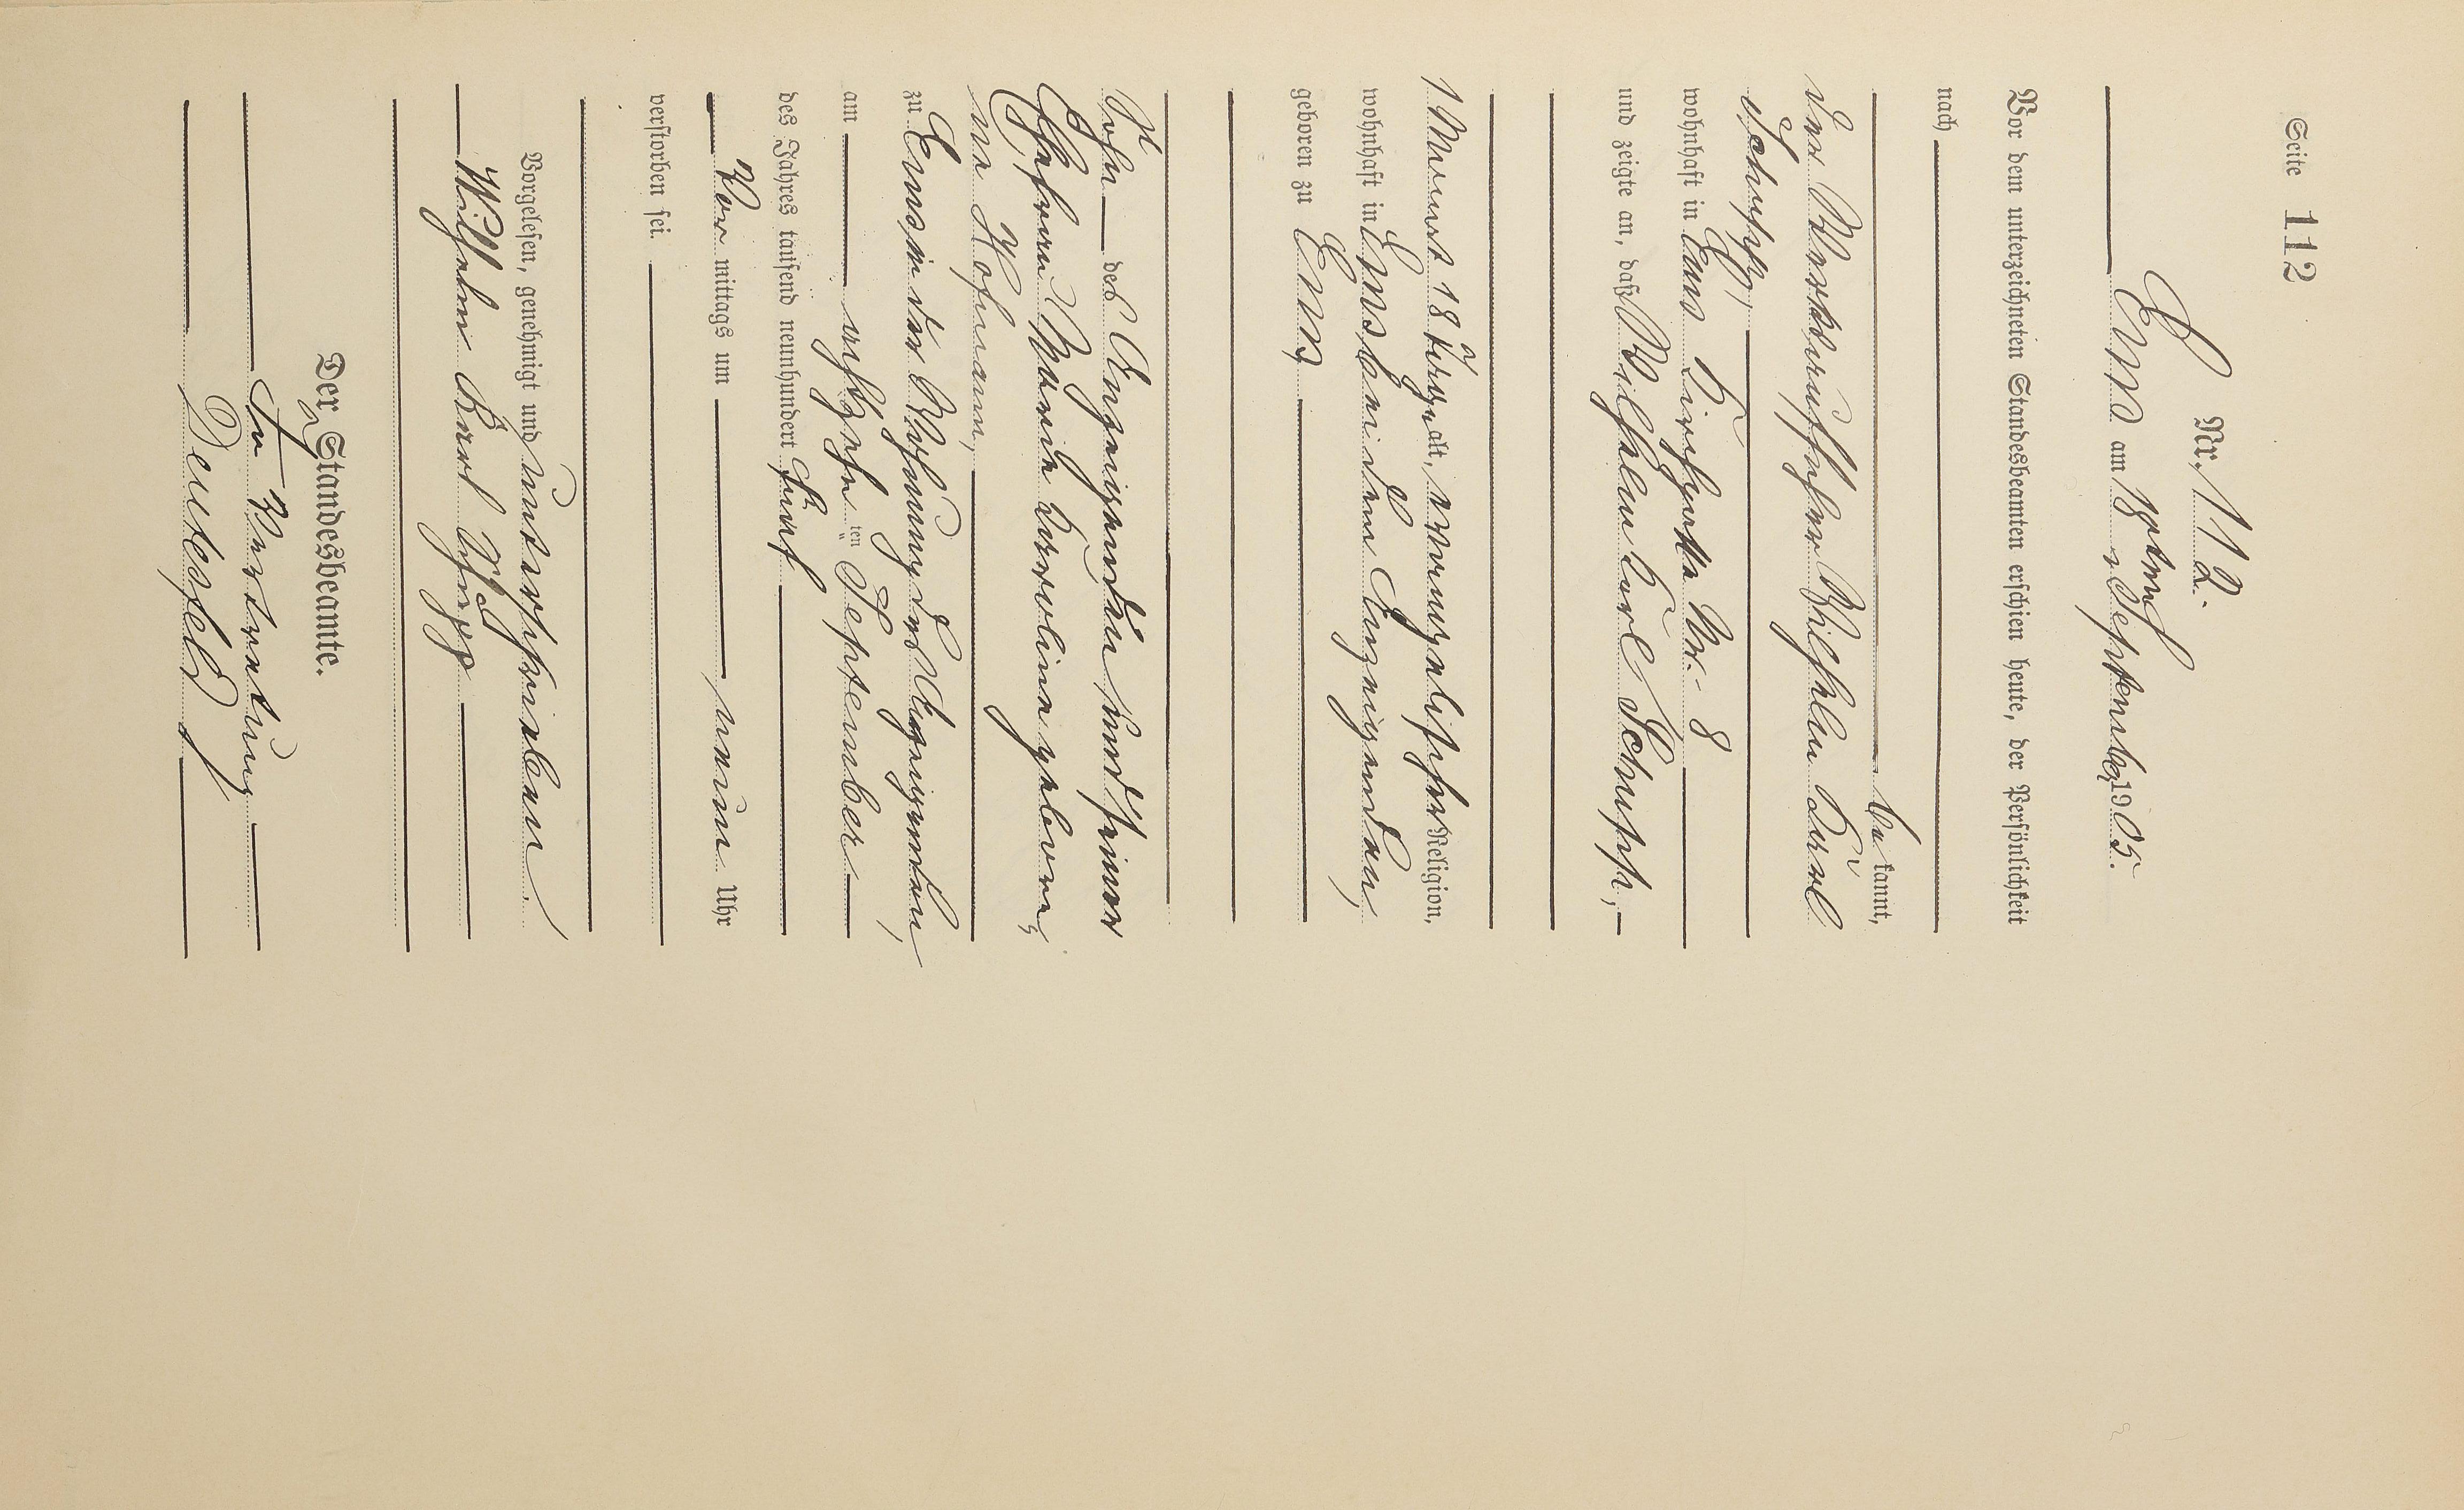 Seite 112
Nr. 112.
Ems am 18ten September 1905.
Vor dem unterzeichneten Standesbeamten erschien heute, der Persönlichkeit
nach
be kannt,
der Werkaufseher Wilhelm Karl
Schupp,
wohnhaft in Ems Kirchgasse Nr. 8
und zeigte an, daß Wilhelm Karl Schupp,
1 Monat 18 Tage alt, evangelischer Religion,
wohnhaft in Ems bei dem Anzeigenden,
geboren zu Ems
Sohn des Anzeigenden und seiner
Ehefrau Marie Karoline gebore-
ne Hofmann,
zu Ems in der Wohnung des Anzeigenden,
am achtzehn ten September
des Jahres tausend neunhundert fünf
Vor mittags um neun Uhr
verstorben sei.
Vorgelesen, genehmigt und unterschrieben.
Wilhelm Karl Schupp
Der Standesbeamte.
In Vertretung
Deutesfeld